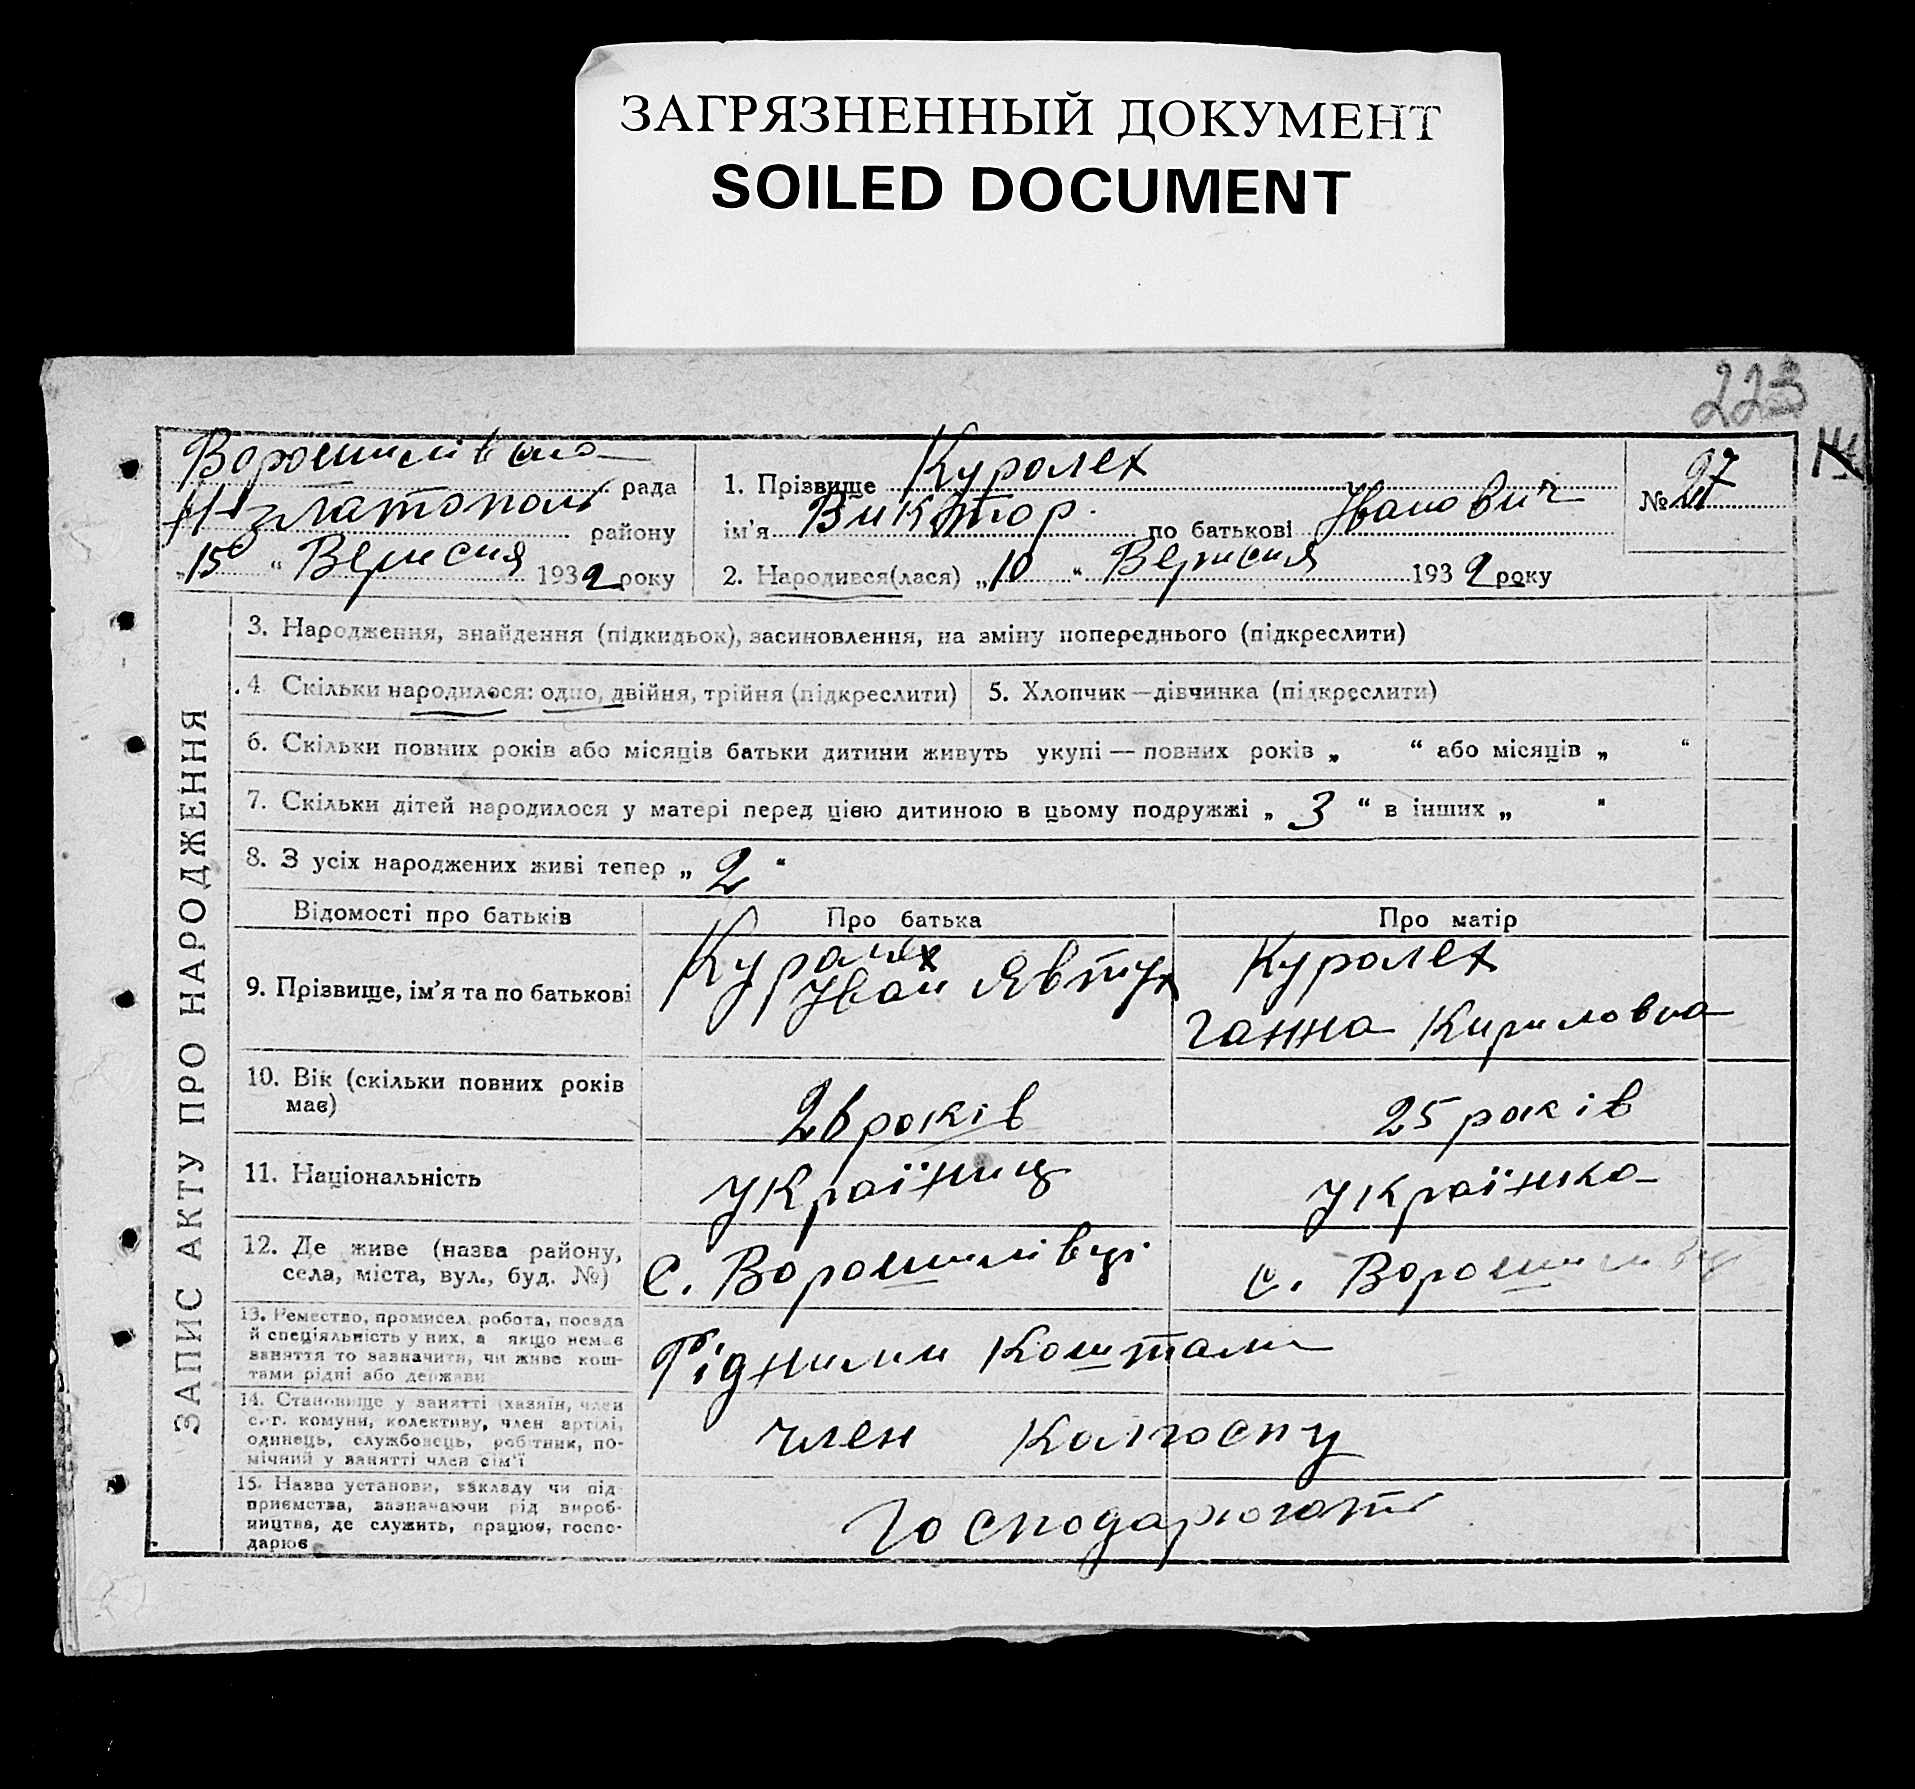 ЗАГРЯЗНЕННЫЙ ДОКУМЕНТ
SOILED DOCUMENT
223
Ворошилівська рада
Н-златополь району
„15“ Вересня 1932 року
1. Прізвище Куролех
ім'я Виктор по батькові Іванович
2. Народився(лася) „10“ Вересня 1932 року
№ 27
ЗАПИС АКТУ ПРО НАРОДЖЕННЯ
3. Народження, знайдення (підкидьок), засиновлення, на зміну попереднього (підкреслити)
4. Скільки народилося: одно, двійня, трійня (підкреслити)
5. Хлопчик—дівчинка (підкреслити)
6. Скільки повних років або місяців батьки дитини живуть укупі — повних років „ “ або місяців „ “
7. Скільки дітей народилося у матері перед цією дитиною в цьому подружжі „ 3 “ в інших „ “
8. З усіх народжених живі тепер „ 2 “
Відомості про батьків
Про батька
Про матір
9. Прізвище, ім'я та по батькові
Куролех
Іван Явтух
Куролех
Ганна Кириловна
10. Вік (скільки повних років
має)
26 років
25 років
11. Національність
Українец
Українка
12. Де живе (назва району,
села, міста, вул., буд. №)
С. Ворошилівці
с. Ворошилівці
13. Ремество, промисел, робота, посада
й спеціяльність у них, а якщо немає
заняття то зазначити, чи живе кош-
тами рідні або держави
Рідними коштами
14. Становище у занятті (хазяїн, член
с.-г. комуни, колективу, член артілі,
одинець, службовець, робітник, по-
мічний у занятті член сім'ї
член колгоспу
15. Назва установи, закладу чи під-
приємства, зазначаючи рід вироб-
ництва, де служить, працює, госпо-
дарює
Господарюють